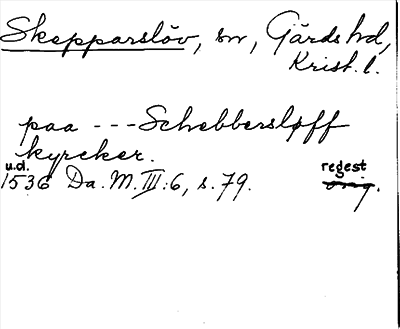 Skepparslöv, sn, Gärds hd,
Krist. l.
paa --- Schebbersløff
kyrcker.
u.d.
1536 Da. M. III:6, s. 79.
regest
orig.